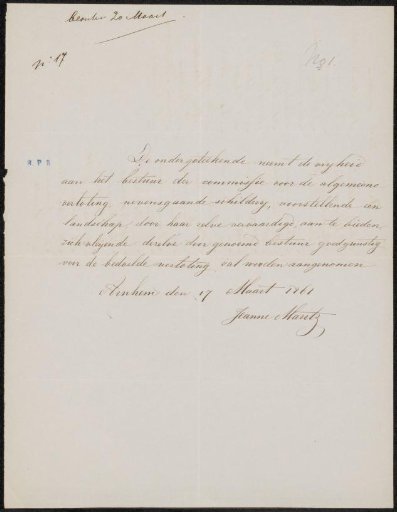 20 Maart.
No 17
No 1.
R P R
De ondergeteekende neemt de vryheid
aan het bestuur der commissie voor de algemeene
verloting nevensgaande schildery, voorstellende een
landschap, door haar zelve vervaardigd, aan te bieden
zich vleyende dezelve door genoemd bestuur goedgunstig
voor de bedoelde verloting zal worden aangenomen
Arnhem den 17 Maart 1861
Jeanne Maretz